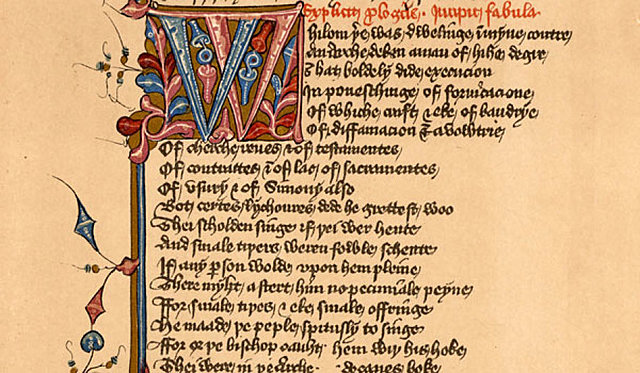 Explicit prologus. Incipit fabula
Whilom þer was dwellinge in myne contre
An arche deken a man of hihe degre
That boldely dide execucion
In poneschinge of fornicacione
Of whiche craft & eke of baudrye
Of diffamacion & avowtrie
Of cherche reves & of testamentes
Of contractes & of lac of sacramentes
Of usury & of Simony also
Bot certes lychoures dede he grettest woo
Thei scholden singe if þei wer hente
And smale tiþers weren fowle schente
If any person wolde upon hem pleine
There myht astert him no pecuniale peyne
ffor smale tiþes & eke smale offringe
He maade þe peple spitusly to singe
ffor or þe bischop cauht hem wiþ his hoke
Thei were in þe boke